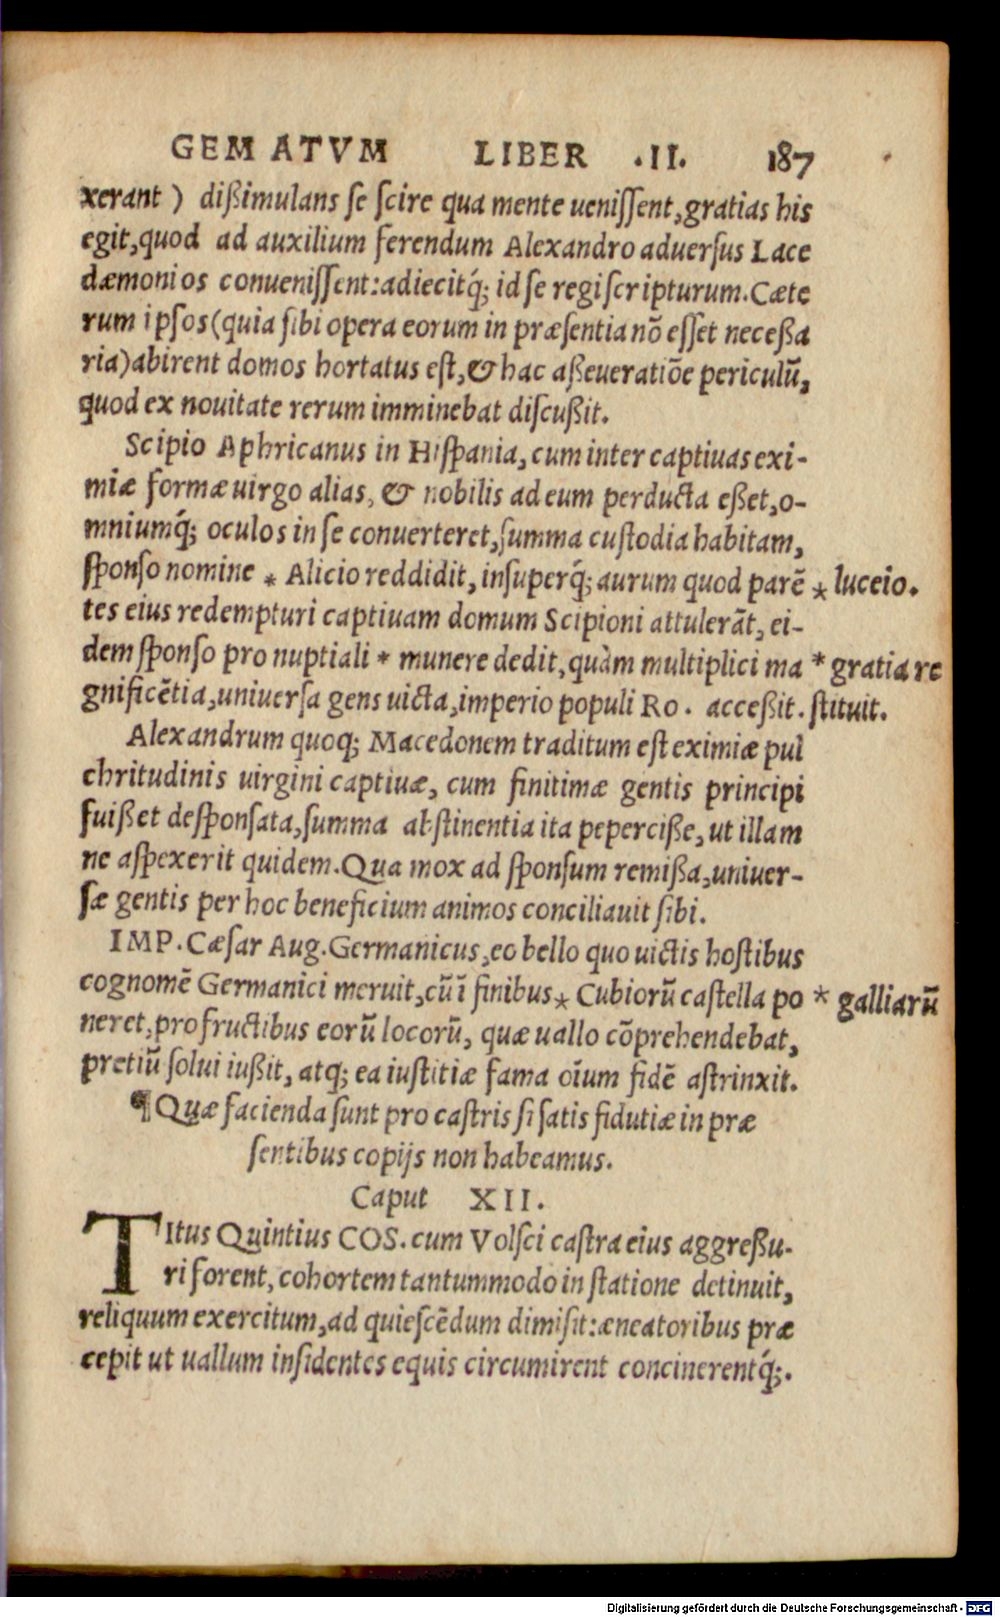 GEM ATVM LIBER .II. 187
xerant ) dißimulans se scire qua mente uenissent, gratias his
egit, quod ad auxilium ferendum Alexandro aduersus Lace
dæmonios conuenissent: adiecitq́; id se regi scripturum. Cæte
rum ipsos (quia sibi opera eorum in præsentia nõ esset neceßa
ria) abirent domos hortatus est, & hac aßeueratiõe periculũ,
quod ex nouitate rerum imminebat discußit.
Scipio Aphricanus in Hispania, cum inter captiuas exi-
miæ formæ uirgo alias, & nobilis ad eum perducta eßet, o-
mniumq́; oculos in se conuerteret, summa custodia habitam,
sponso nomine * Alicio reddidit, insuperq́; aurum quod parẽ * luceio.
tes eius redempturi captiuam domum Scipioni attulerãt, ei-
dem sponso pro nuptiali * munere dedit, quàm multiplici ma * gratia re
gnificẽtia, uniuersa gens uicta, imperio populi Ro. acceßit. stituit.
Alexandrum quoq; Macedonem traditum est eximiæ pul
chritudinis uirgini captiuæ, cum finitimæ gentis principi
fuißet desponsata, summa abstinentia ita peperciße, ut illam
ne aspexerit quidem. Qua mox ad sponsum remißa, uniuer-
sæ gentis per hoc beneficium animos conciliauit sibi.
IMP. Cæsar Aug. Germanicus, eo bello quo uictis hostibus
cognomẽ Germanici meruit, cũ ĩ finibus * Cubiorũ castella po * galliarũ
neret, pro fructibus eorũ locorũ, quæ uallo cõprehendebat,
pretiũ solui iußit, atq; ea iustitiæ fama oĩum fidẽ astrinxit.
¶ Quæ facienda sunt pro castris si satis fidutiæ in præ
sentibus copijs non habeamus.
Caput XII.
TItus Quintius COS. cum Volsci castra eius aggreßu-
ri forent, cohortem tantummodo in statione detinuit,
reliquum exercitum, ad quiescẽdum dimisit: æneatoribus præ
cepit ut uallum insidentes equis circumirent concinerentq́;.
Digitalisierung gefördert durch die Deutsche Forschungsgemeinschaft - DFG